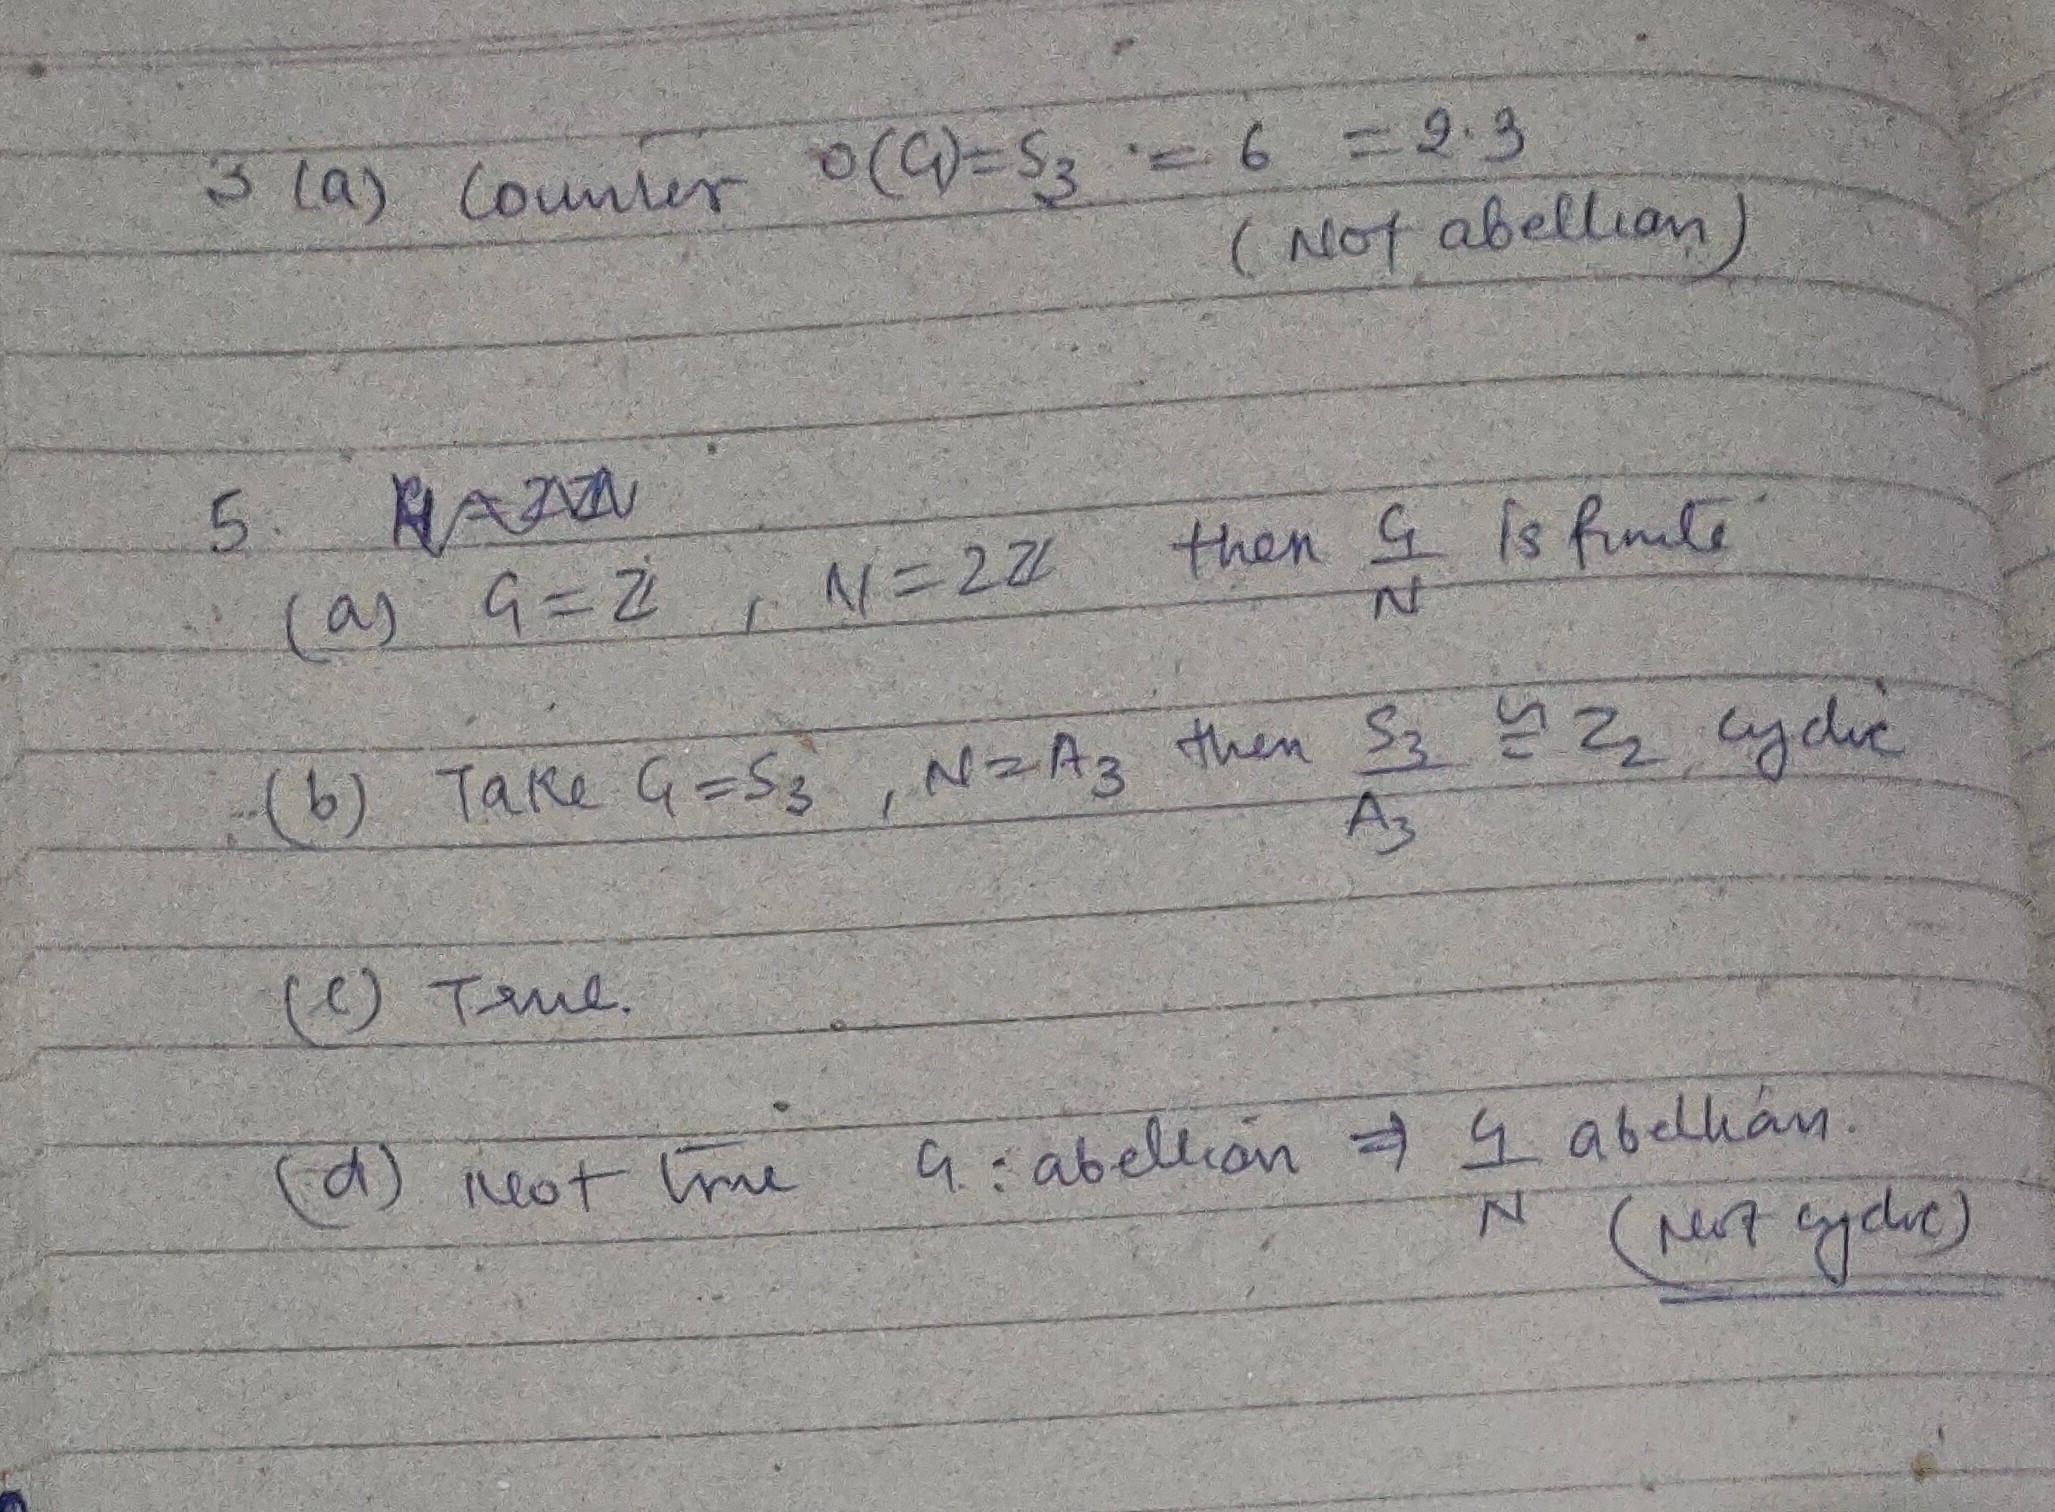 3 (a) Counter o(G)=S₃ = 6 = 2·3
(Not abellian)
5.
(a) G = ℤ , N = 2ℤ then G/N is finite
(b) Take G = S₃ , N = A₃ then S₃/A₃ ≅ Z₂ cyclic
(c) True.
(d) Not true G : abellian ⇒ G/N abellian.
(Not cyclic)